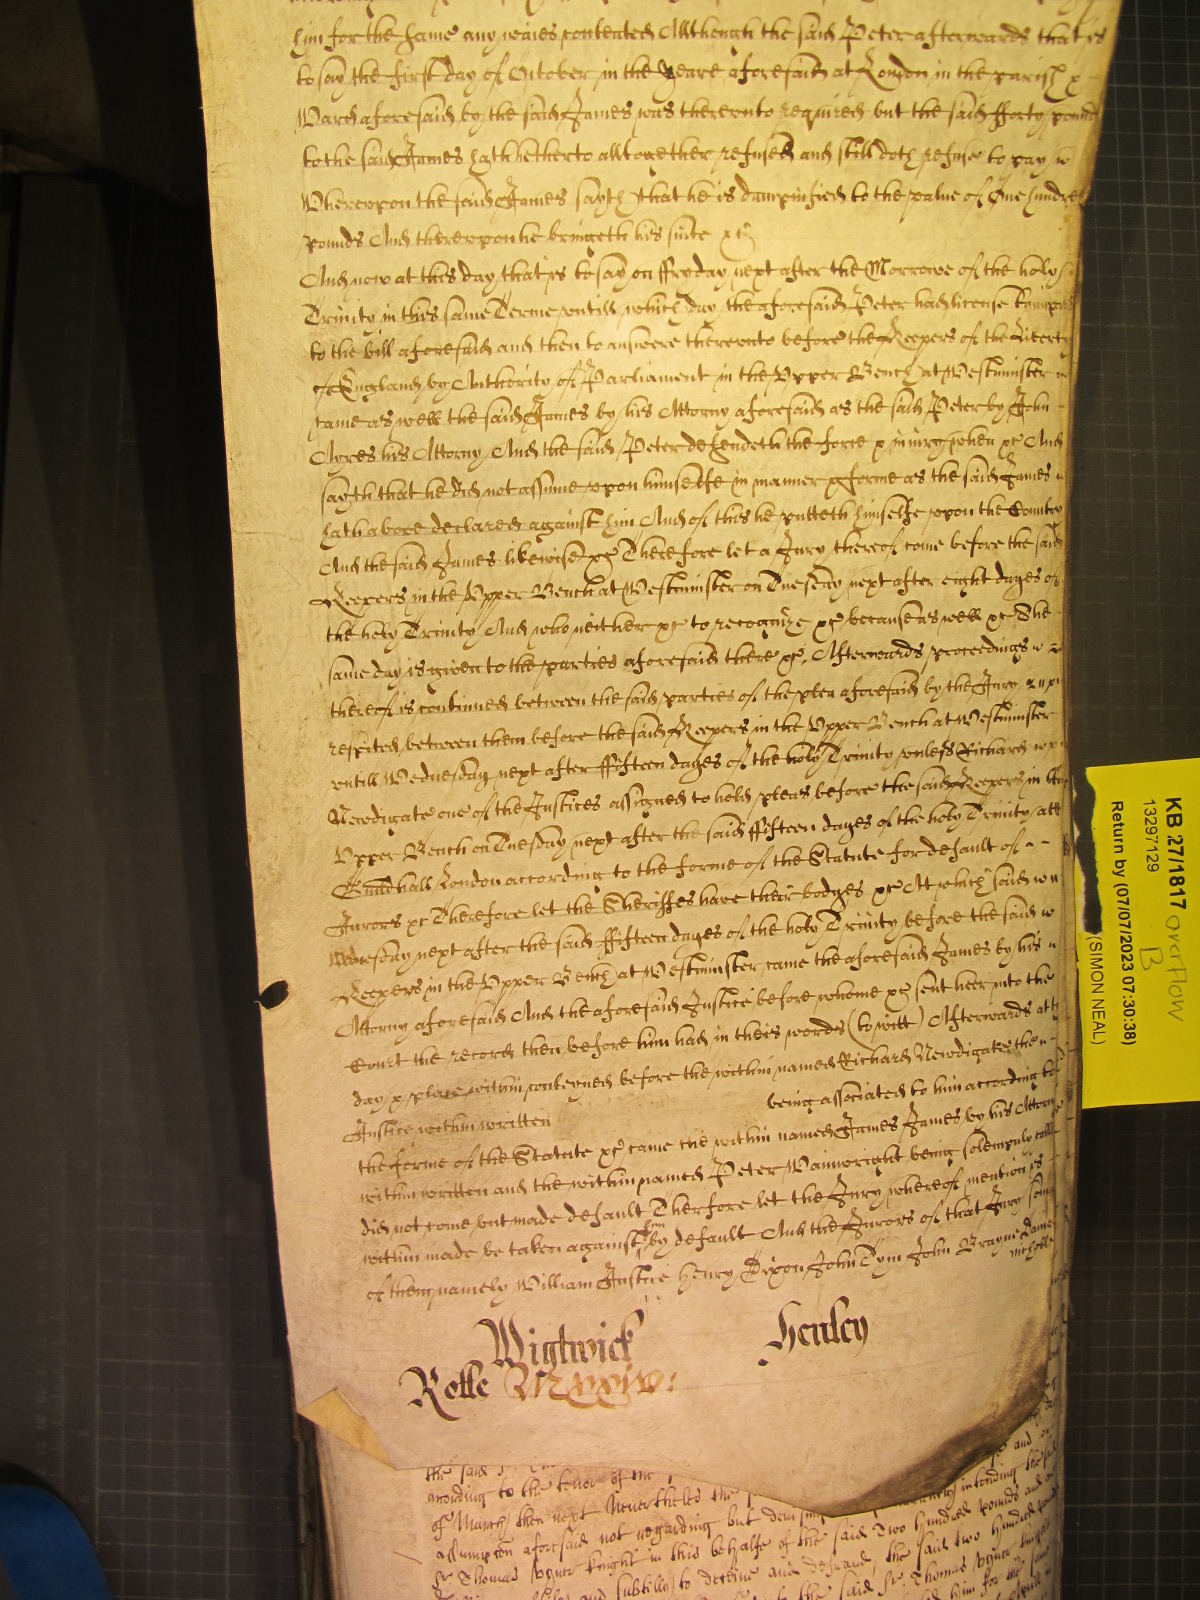 him for the same any waies contented Allthough the said Peter afterwards that is
to say the first day of October in the yeare aforesaid at London in the parish &
Ward aforesaid by the said James was thereunto required but the said fforty pounds
to the said James hath hetherto alltogether refused and still doth refuse to pay
Whereupon the said James sayth that he is dampnified to the value of One hundred
pounds And thereupon he bringeth his suite &c
And now at this day that is to say on ffryday next after the Morrowe of the holy
Trinity in this same Terme untill which day the aforesaid Peter had license to imparle
to the bill aforesaid and then to answere thereunto before the Keepers of the Liberty
of England by Authority of Parliament in the Upper Bench at Westminster
came as well the said James by his Attorny aforesaid as the said Peter by John
Ayres his Attorny And the said Peter defendeth the force & iniury when &c And
sayth that he did not assume upon himselfe in manner & forme as the said James
hath above declared against him And of this he putteth himselfe upon the Country
And the said James likewise &c Therefore let a Jury thereof come before the said
Keepers in the Upper Bench at Westminster on Tuesday next after eight dayes of
the holy Trinity And who neither &c to recognize &c because as well &c The
same day is given to the parties aforesaid there &c. Afterwards proceedings
thereof is continued between the said parties of the plea aforesaid by the Jury
respited between them before the said Keepers in the Upper Bench at Westminster
untill Wednesday next after ffifteen dayes of the holy Trinity unless Richard
Newdigate one of the Justices assigned to hold pleas before the said Keepers in the
Upper Bench on Tuesday next after the said ffifteen dayes of the holy Trinity att
Guildhall London according to the forme of the Statute for default of
Jurors &c Therefore let the Sheriffes have their bodyes &c At which said
Wednesday next after the said ffifteen dayes of the holy Trinity before the said
Keepers in the Upper Bench at Westminster came the aforesaid James by his
Attorny aforesaid And the aforesaid Justice before whome &c sent heer into the
Court the record then before him had in theis words (to witt) Afterwards at the
day & place within conteyned before the within named Richard Newdigate the
Justice within written being associated to him according to
the forme of the Statute &c came the within named James James by his Attorny
within written and the within named Peter Wainwright being solempnly called
did not come but made default Therfore let the Jury whereof mention is
within made be taken against him by default And the Jurors of that Jury some
of them namely William Justice Henry Dixon John Tym John Brayne
Wightwick Henley
Rolle Mxxiv:
the said
according to the tenor of the
of March then next Neverthelesse the
assumption aforesaid not regarding but
Sr Thomas Vyner Knight in this behalfe of the said Two hundred pounds and
and subtilly to deceive and defraud the said Sr Thomas Vyner
KB 27/1817 overflow
13297129 B
Return by (07/07/2023 07:30:38)
(SIMON NEAL)